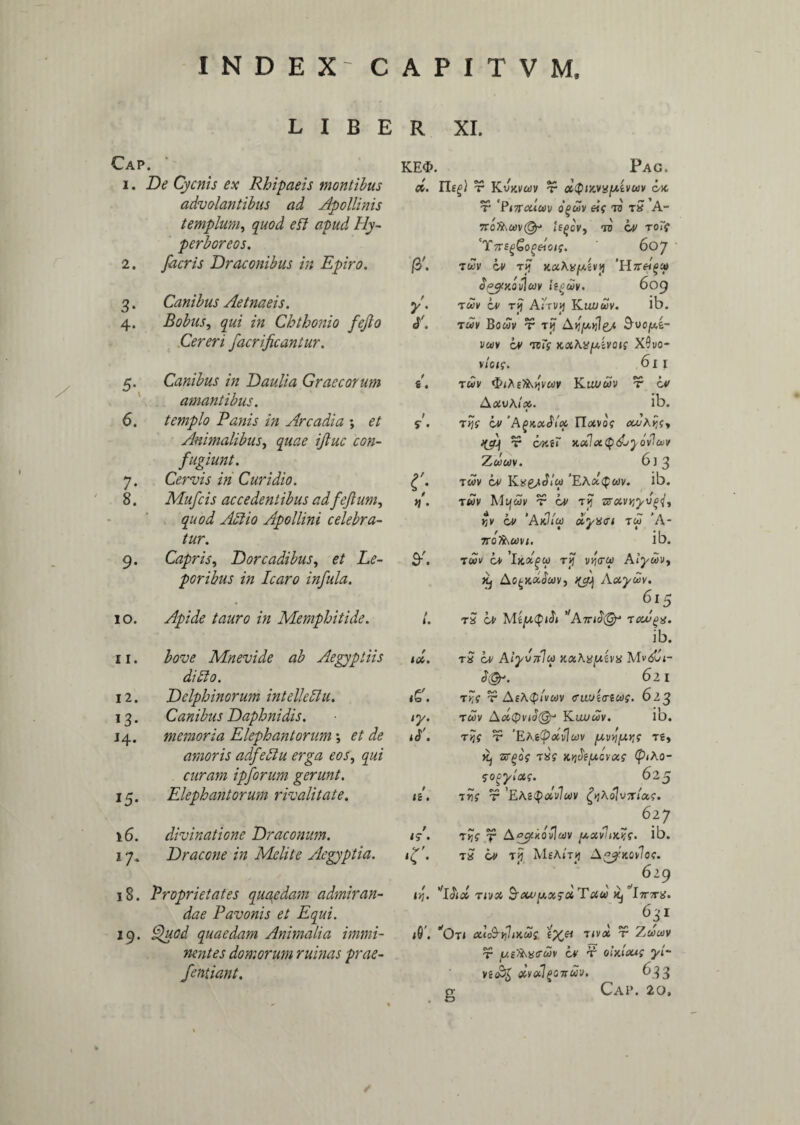 INDEX CAPITVM,
LIBER XI.
CAP.
1. De Cycnis ex Rhipaeis montibus
advolantibus ad Apollinis
templum, quod est apud Hy-
perboreos.
2. sacris Draconibus in Epiro.
3. Canibus Aetnaeis.
4. Bobus, qui in Chthonio festo
Cereri sacrificantur.
5. Canibus in Daulia Graecorum
amantibus.
6. templo Panis in Arcadia ; et
Animalibus, quae istuc con-
fugiunt.
7. Cervis in Curidio.
8. Muscis accedentibus ad festum,
quod Actio Apollini celebra-
tur.
9. Capris, Dorcadibus, et Le-
poribus in Icaro insula.
10. Apide tauro in Memphitide.
11. bove Mnevide ab Aegyptiis
dicto.
12. Delphinorum intellectu.
13. Canibus Daphnidis.
14. memoria Elephantorum ; et de
amoris adfectu erga eos, qui
curam ipsorum gerunt.
15. Elephantorum rivalitate.
16. divinatione Draconum.
17. Dracone in Melite Aegyptia.
18. Proprietates quaedam admiran-
dae Pavonis et Equi.
19. Quod quaedam Animalia immi-
nentes domorum ruinas prae-
sentiant.
ΚΕΦ. PAG.
α. Περὶ τ̃ Κύκνων τ̃ ἀφικνȣμένων ἐκ
τ̃ Ῥιπαίων ὀρῶν εἰς τὸ τȣ͂ Ἀ-
πόλλωνος ἱερὸν, τὸ ἐν τοῖς
Ὑπερβορείοις. 607
β΄. τῶν ἐν τῇ καλȣμένῃ Ἠπείρῳ
δρακόντων ἱερῶν. 609
γ΄. τῶν ἐν τῇ Αἴτνῃ Κυνῶν. ib.
δ΄. τῶν Βοῶν τ̃ τῇ Δήμητρι θυομέ-
νων ἐν τοῖς καλȣμένοις Χθο-
νίοις. 611
ε΄. τῶν Φιλελλήνων Κυνῶν τ̃ ἐν
Δαυλίᾳ. ib.
ς΄. τῆς ἐν Ἀρκαδίᾳ Πανὸς αὐλῆς,
καὶ τ̃ ἐκεῖ καταφευγόντων
Ζώων. 613
ζ΄. τῶν ἐν Κȣριδίῳ Ἐλάφων. ib.
η΄. τῶν Μυῶν τ̃ ἐν τῇ πανηγύρει,
ἣν ἐν Ἀκτίῳ ἄγȣσι τῷ Ἀ-
πόλλωνι. ib.
θ΄. τῶν ἐν Ἰκάρῳ τῇ νήσῳ Αἰγῶν,
καὶ Δορκάδων, καὶ Λαγῶν.
615
ι΄. τȣ͂ ἐν Μέμφιδι Ἄπιδος ταύρȣ.
ib.
ια΄. τȣ͂ ἐν Αἰγύπτῳ καλȣμένȣ Μνεύι-
δος. 621
ιβ΄. τῆς τ̃ Δελφίνων συνέσεως. 623
ιγ΄. τῶν Δάφνιδος Κυνῶν. ib.
ιδ΄. τῆς τ̃ Ἐλεφάντων μνήμης τε,
καὶ πρὸς τȣ̀ς κηδεμόνας φιλο-
στοργίας. 625
ιε΄. τῆς τ̃ Ἐλεφάντων ζηλοτυπίας.
627
ις΄. τῆς τ̃ Δρακόντων μαντικῆς. ib.
ιζ΄. τȣ͂ ἐν τῇ Μελίτῃ Δράκοντος.
629
ιη΄. Ἴδιά τινα θαυμαστὰ Ταὼ καὶ Ἵππȣ.
631
ιθ΄. Ὅτι αἰσθητικῶς ἔχει τινὰ τ̃ Ζώων
τ̃ μελλȣσῶν ἐν τ̃ οἰκίαις γί-
νεσθαι ἀνατροπῶν. 633
g CAP. 20,